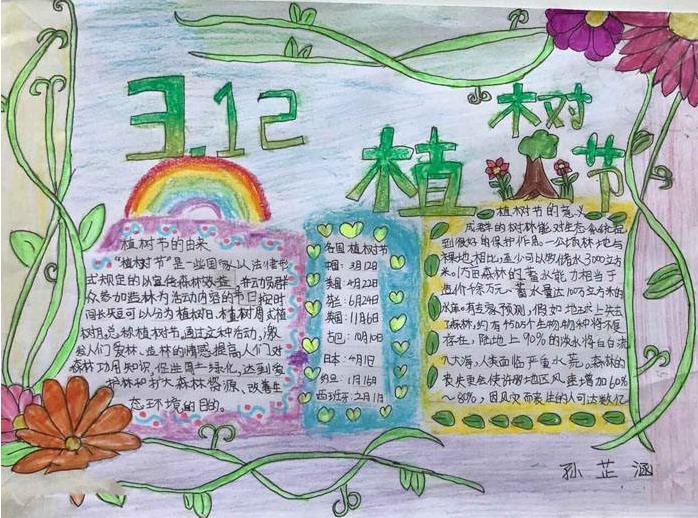 3.12
植树节
植树节的由来
"植树节"是一些国家以法律形
式规定的以宣传森林效益,并动员群
众参加造林为活动内容的节日,按时
间长短可以分为植树日、植树周或植
树月,总称植树节。通过这种活动,激
发人们爱林、造林的情感,提高人们对
森林功用知识,促进国土绿化,达到爱
护林种和扩大森林资源、改善生
态环境的目的。
各国植树节
中国:3月12日
美国:4月22日
泰国:6月24日
英国:11月6日
古巴:10月10日
日本:4月1日
约旦:1月16日
西班牙:2月1日
植树节的意义
成群的树林能对生态系统起
到很好的保护作用。一公顷林地与
裸地相比,至少可以多储水3000立方
米。1万亩森林的蓄水能力相当于
蓄水量达100万立方米的
水库。有专家预测,假如地球上失去
了森林,约有450万个生物物种将不复
存在,陆地上90%的淡水将白白流
入大海,人类面临严重水荒。森林的
丧失更会使许多地区风速增加60%
~80%,因风灾而丧生的人可达数亿
孙芷涵